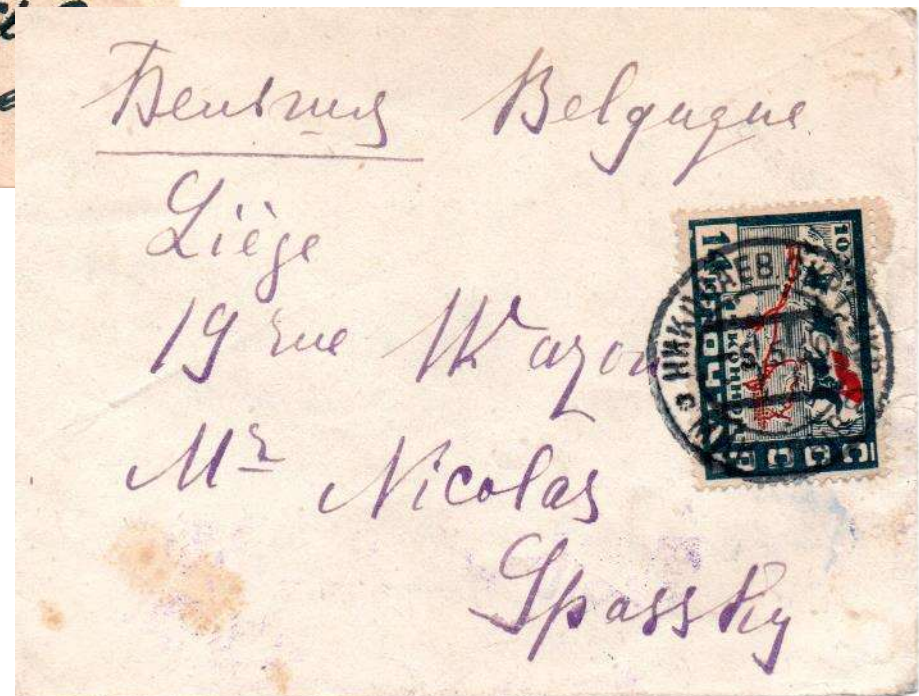 Бельгия Belgique
Liège
19 rue Wazon
Mr Nicolas
Spassky
14
ПОЧТА
СССР
НИКОЛАЕВ